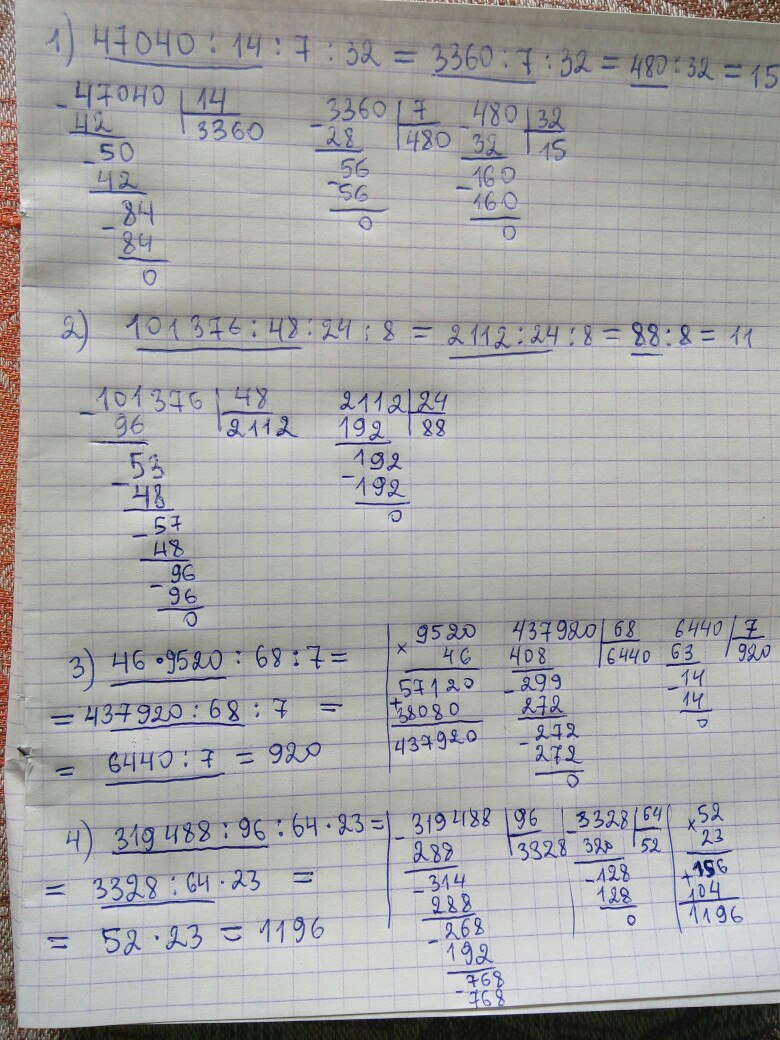 1) 47040 : 14 : 7 : 32 = 3360 : 7 : 32 = 480 : 32 = 15
- 47040 | 14
42 3360
- 50
42
- 84
84
0
- 3360 | 7
28 480
- 56
56
0
- 480 | 32
32 15
- 160
160
0
2) 101376 : 48 : 24 : 8 = 2112 : 24 : 8 = 88 : 8 = 11
- 101376 | 48
96 2112
- 53
48
- 57
48
- 96
96
0
2112 | 24
192 88
- 192
192
0
3) 46 · 9520 : 68 : 7 =
= 437920 : 68 : 7 =
= 6440 : 7 = 920
× 9520
46
57120
+ 38080
437920
437920 | 68
408 6440
- 299
272
- 272
272
0
6440 | 7
63 920
- 14
14
0
4) 319488 : 96 : 64 · 23 =
= 3328 : 64 · 23 =
= 52 · 23 = 1196
- 319488 | 96
288 3328
- 314
288
- 268
192
- 768
768
- 3328 | 64
320 52
- 128
128
0
× 52
23
+ 156
104
1196